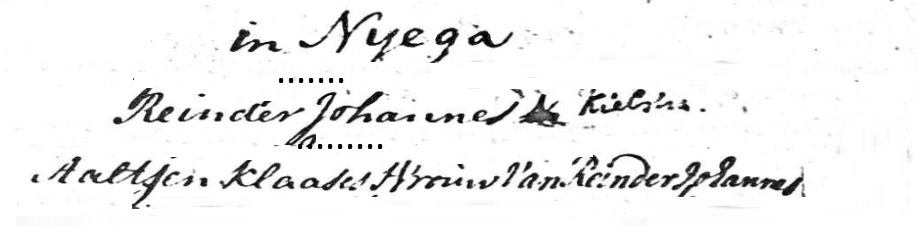 in Nyega
Reinder Johannes
Aaltjen Klaases Vrouw Van Reinder Johannes